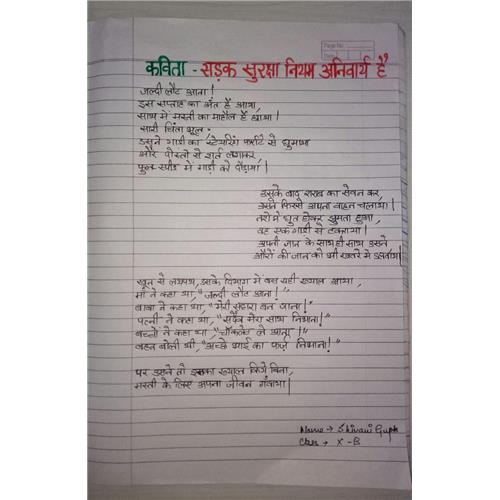 Page No.
Date
कविता - सड़क सुरक्षा नियम अनिवार्य है
जल्दी लौट आना!
इस सप्ताह का अंत है आया,
साथ में मस्ती का माहौल है छाया।
सारी चिंता भूल,
उसने गाड़ी का स्टेयरिंग फर्राटे से घुमाया
और दोस्तों से शर्त लगाकर,
फुल स्पीड में गाड़ी को दौड़ाया।
उसके बाद शराब का सेवन कर,
उसने फिरसे अपना वाहन चलाया।
नशे में धुत होकर झूमता हुआ,
वह एक गाड़ी से टकराया।
अपनी जान के साथ ही साथ उसने
औरों की जान को भी खतरे में डलवाया।
खून से लथपथ, उसके दिमाग में बस यही ख्याल आया,
माँ ने कहा था, "जल्दी लौट आना!"
बाबा ने कहा था, "मेरी सहारा बन जाना!"
पत्नी ने कहा था, "सदैव मेरा साथ निभाना!"
बच्चों ने कहा था, "चॉकलेट ले आना!"
बहन बोली थी, "अच्छे भाई का फर्ज़ निभाना!"
पर उसने तो इसका ख्याल किये बिना,
मस्ती के लिए अपना जीवन गंवाया।
Name → Shivani Gupta
Class → X-B